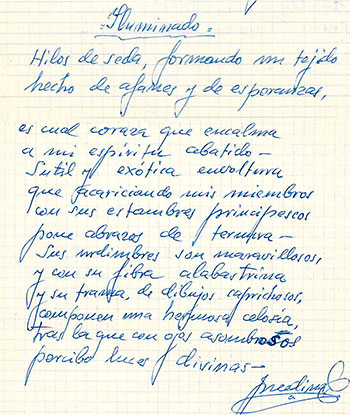 =Iluminado=
Hilos de seda, formando un tejido
hecho de afanes y de esperanzas,
es cual coraza que encalma
a mi espíritu abatido—
Sutil y exótica envoltura
que acariciando mis miembros
con sus estambres principescos
pone abrazos de ternura—
Sus urdimbres son maravillosos,
y con su fibra alabastrina
y su trama, de dibujos caprichosos,
componen una hermosa celosía,
tras la que con ojos asombrosos
percibo luces divinas—